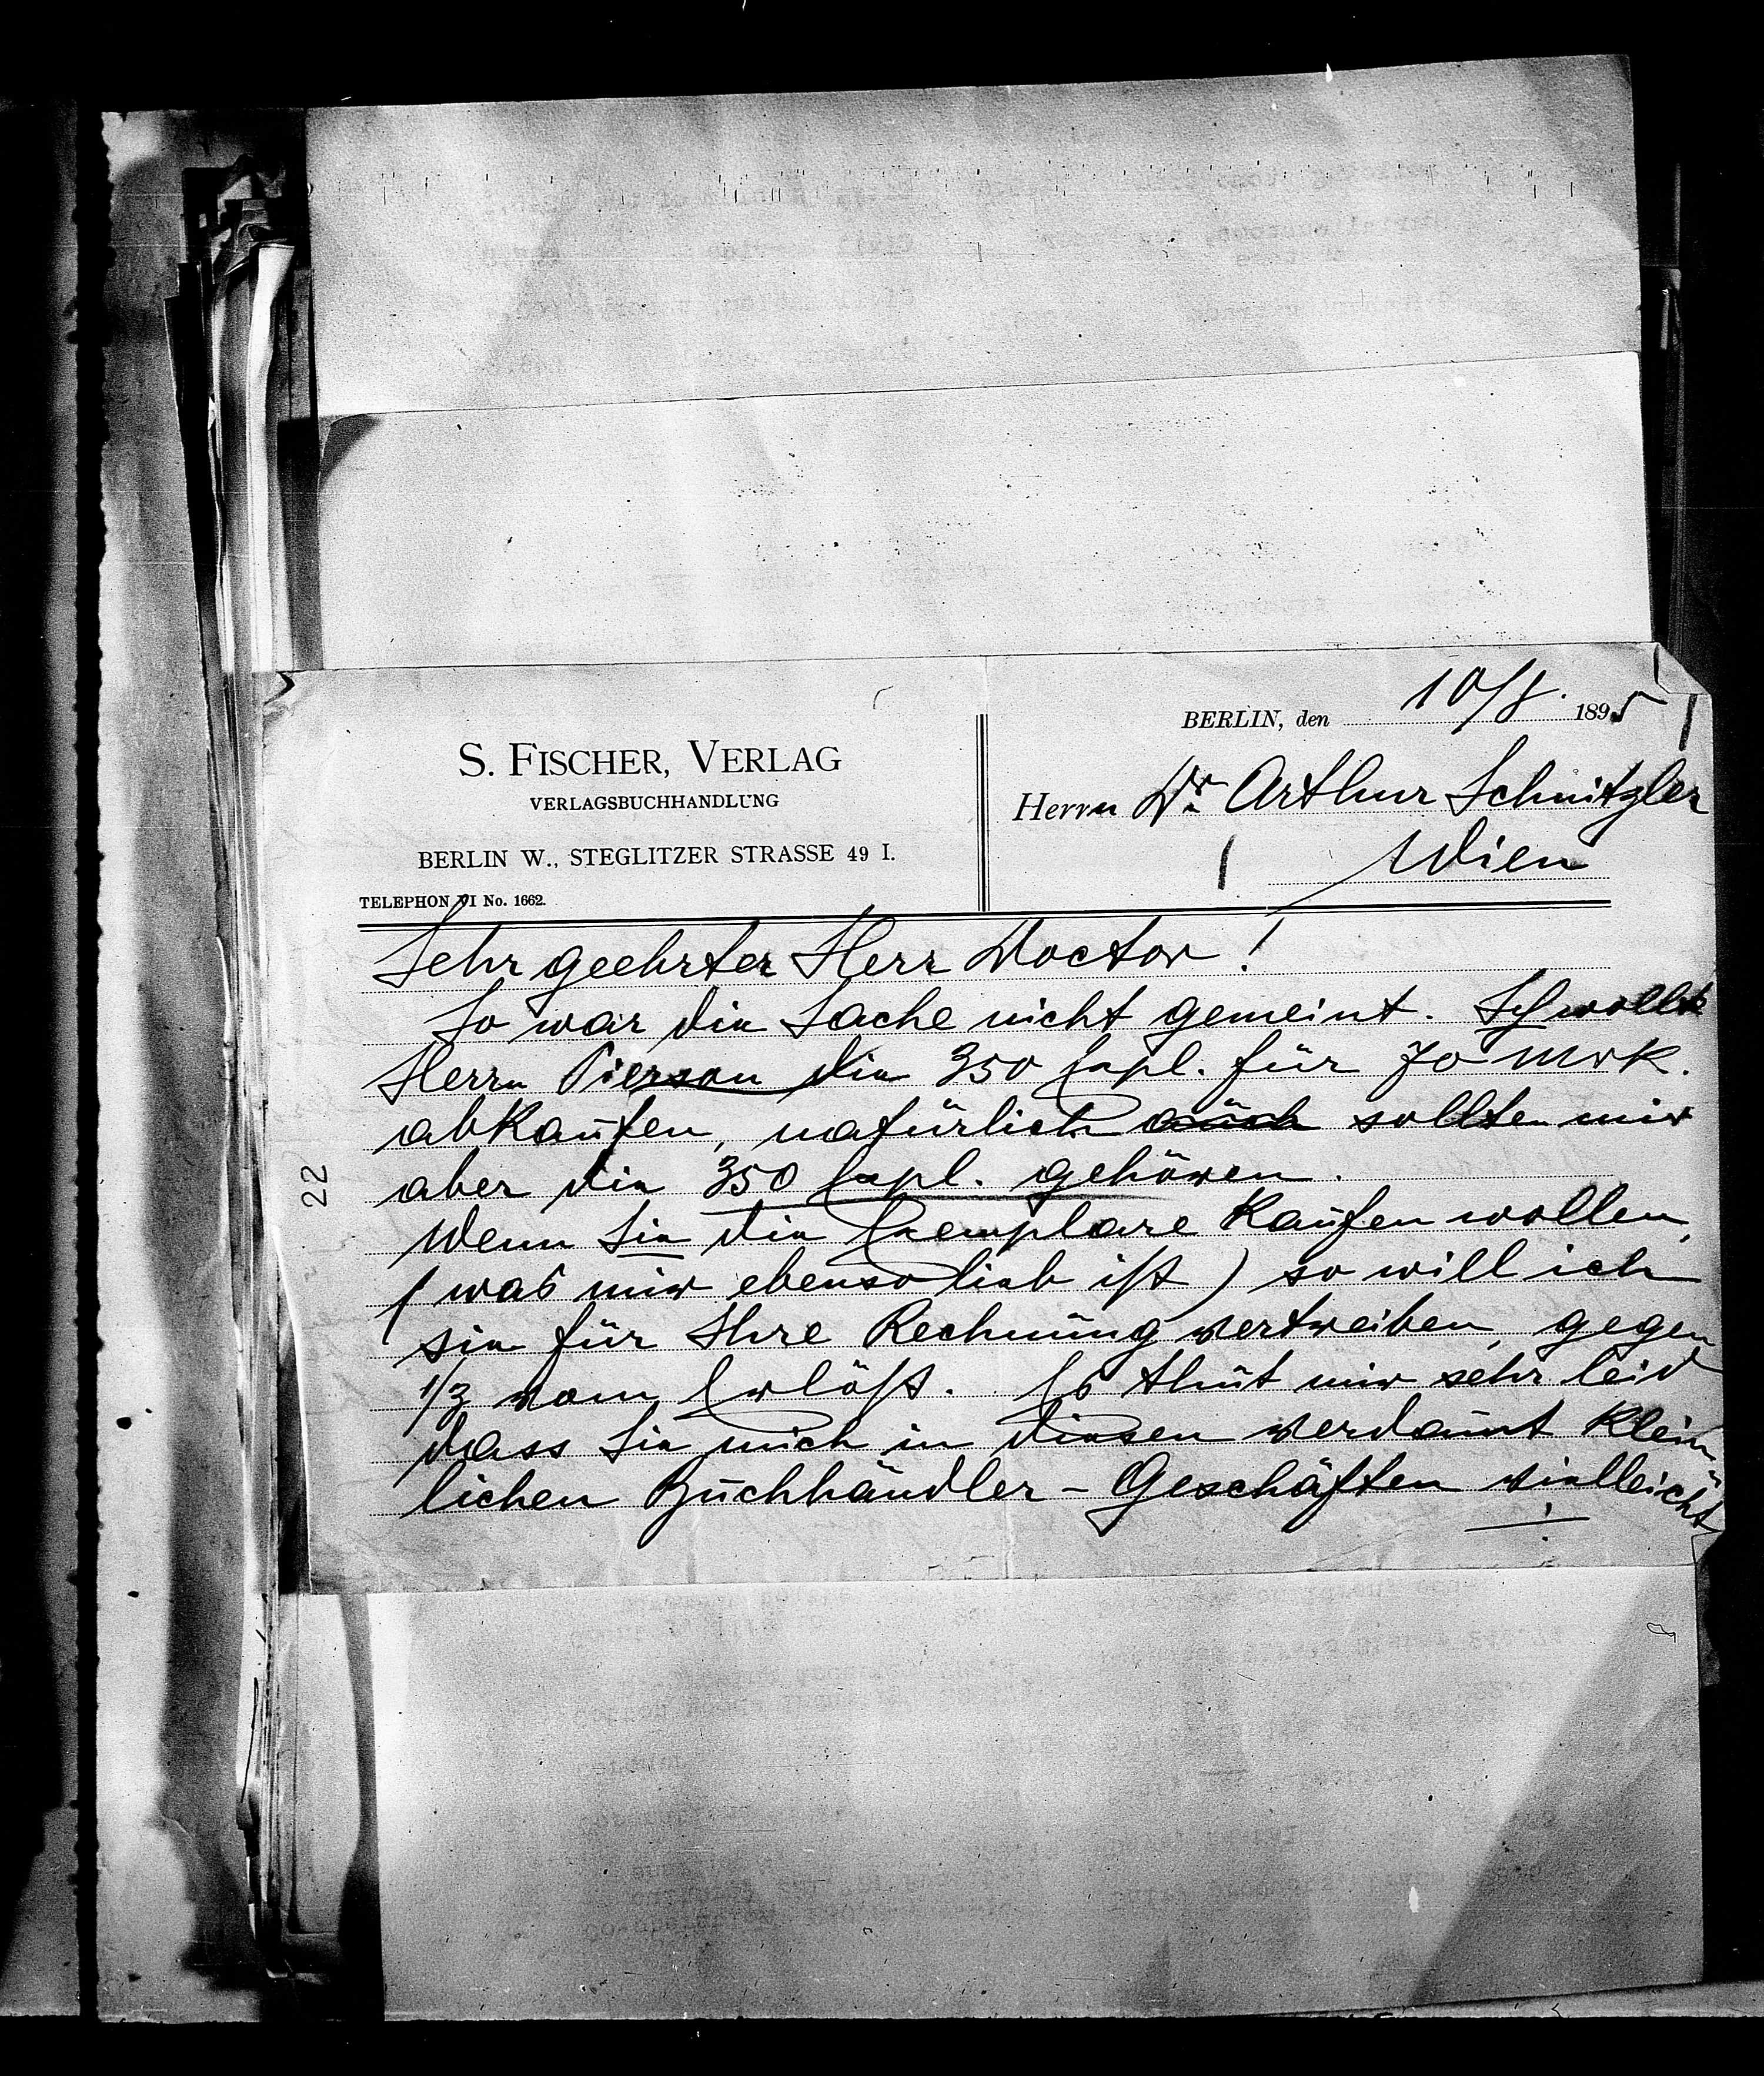 BERLIN, den 10/8. 1895
S. FISCHER, VERLAG
VERLAGSBUCHHANDLUNG
BERLIN W., STEGLITZER STRASSE 49 I.
TELEPHON VI No. 1662.
Herrn Dr. Arthur Schnitzler
Wien
Sehr geehrter Herr Doctor!
So war die Sache nicht gemeint. Ich wollte
Herrn Pierson die 350 Expl. für 70 Mrk.
abkaufen, natürlich auch sollten mir
aber die 350 Expl. gehören.
Wenn Sie die Exemplare kaufen wollen,
(was mir ebenso lieb ist) so will ich
sie für Ihre Rechnung vertreiben, gegen
1/3 vom Erlöß. Es thut mir sehr leid
dass Sie mich in diesen verdamt klein
lichen Buchhändler-Geschäften vielleicht
22